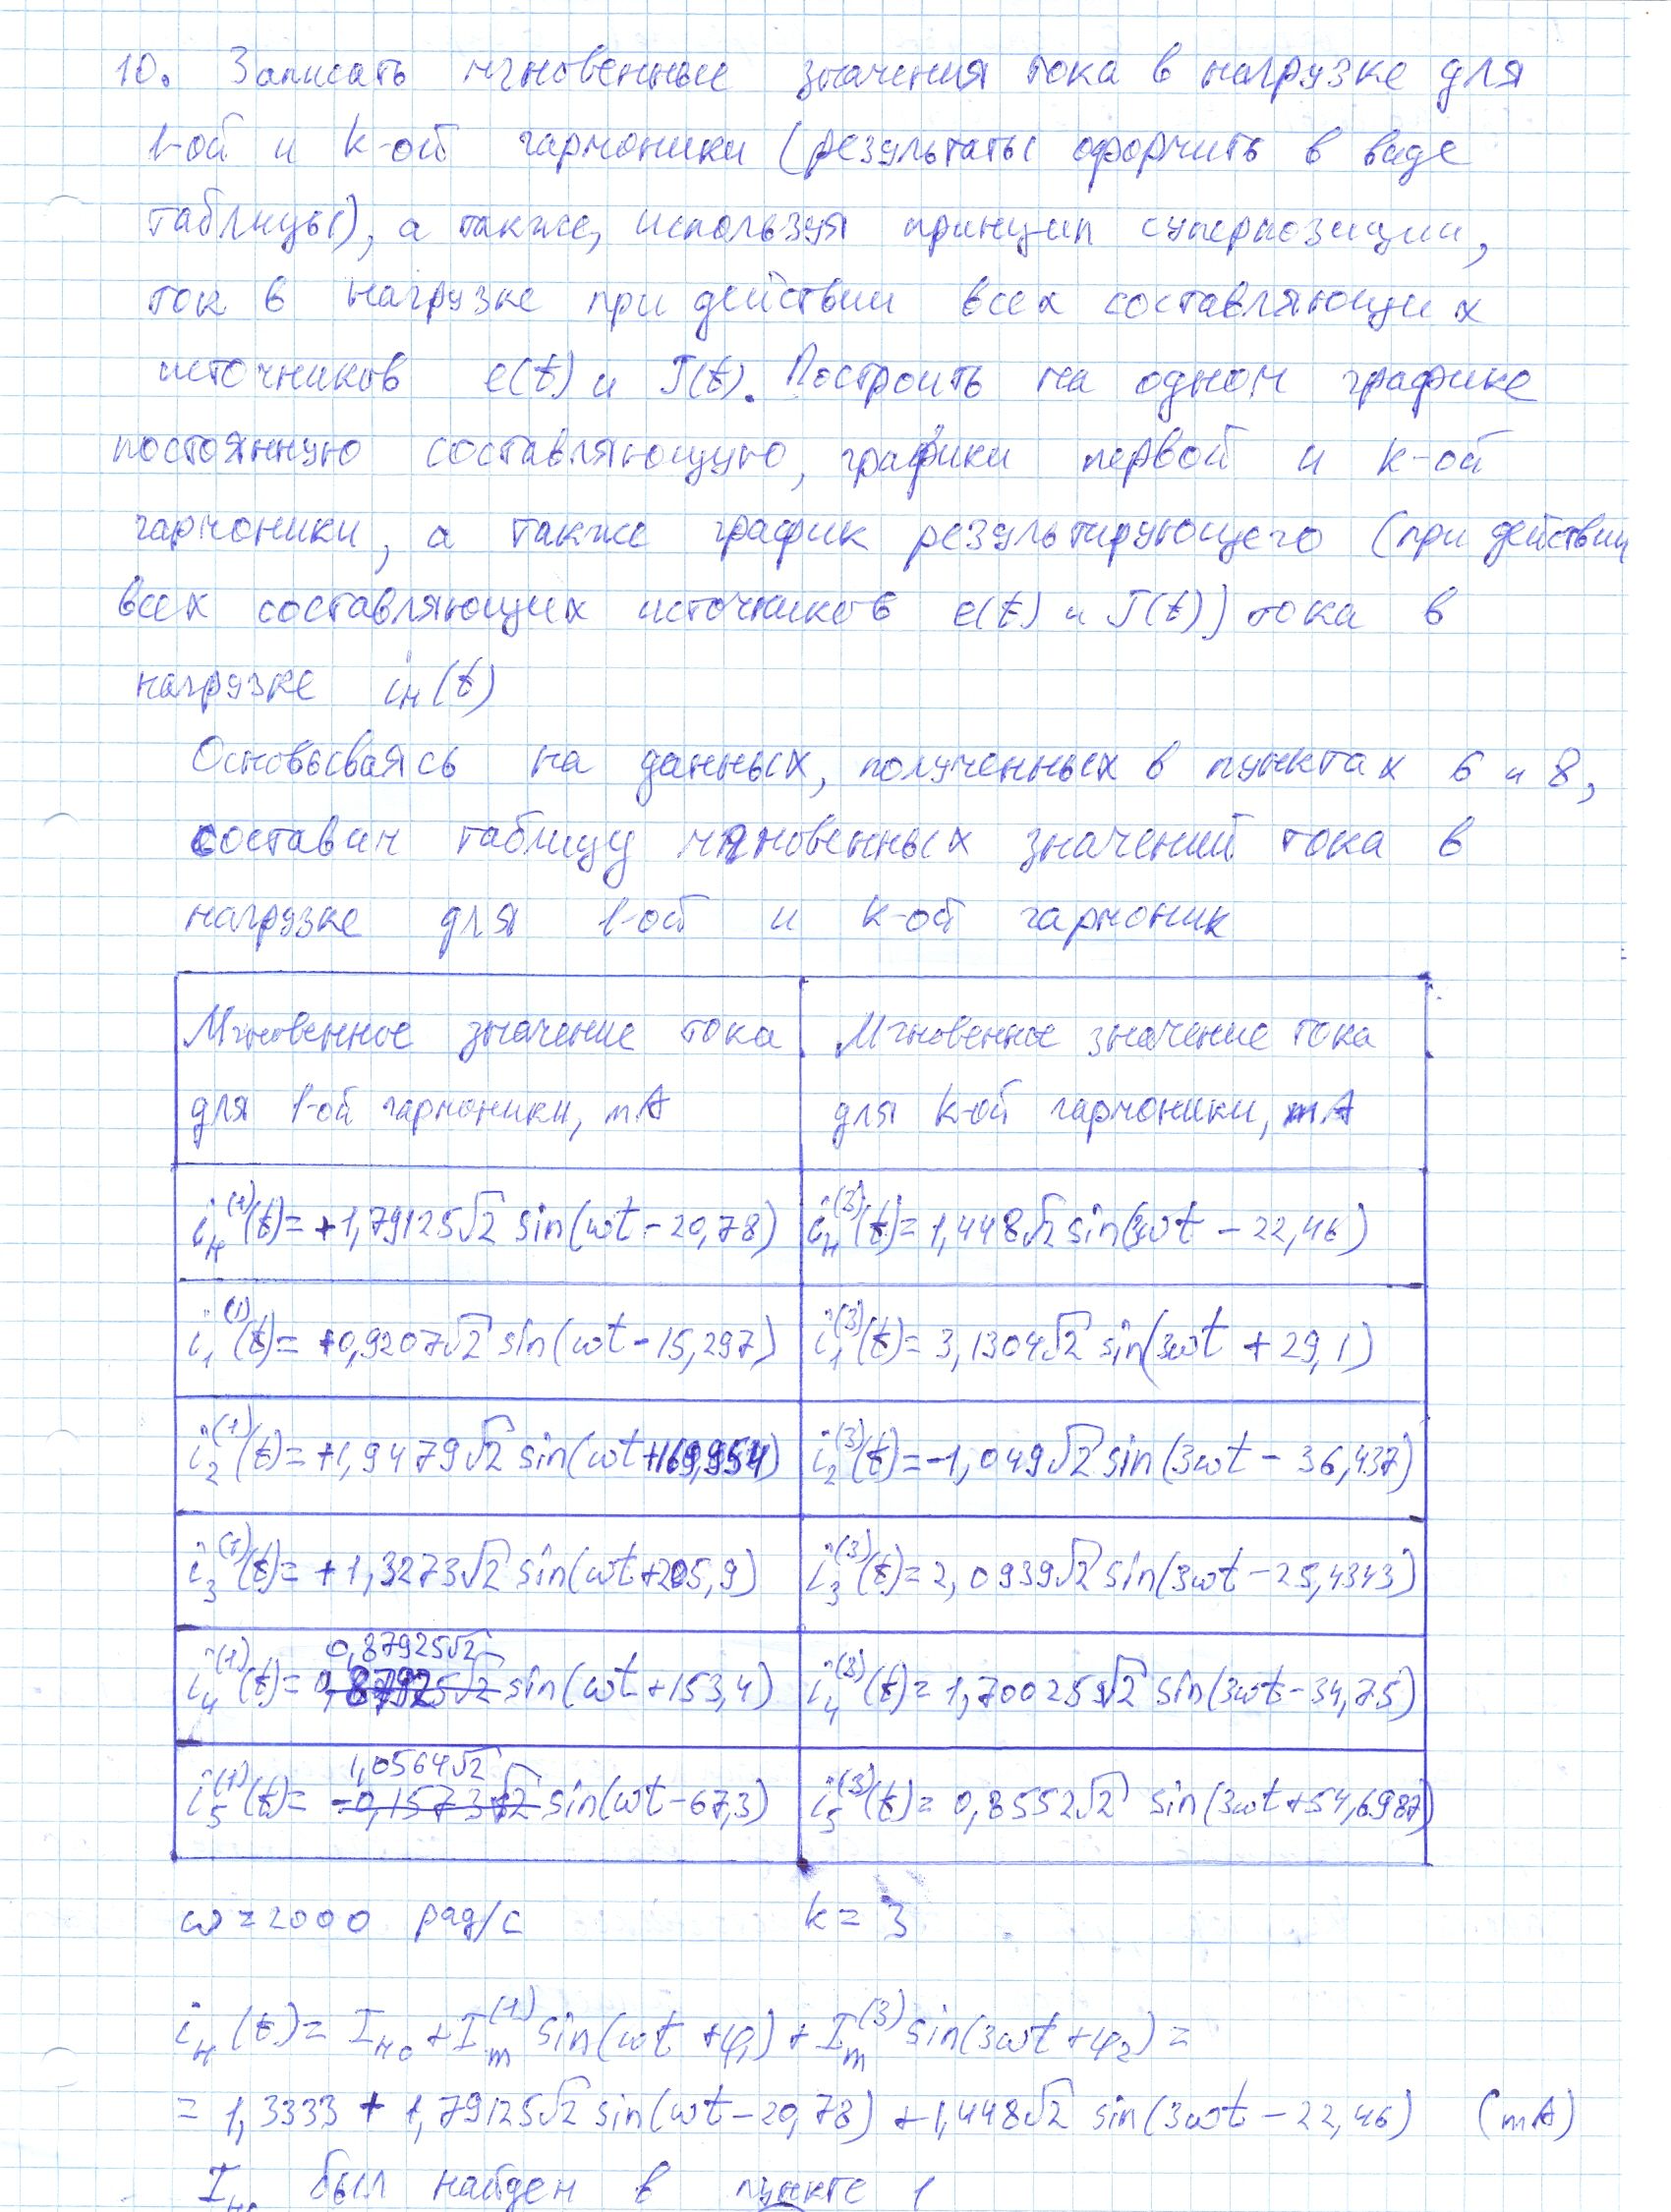 10. Записать мгновенные значения тока в нагрузке для
1-ой и k-ой гармоники (результаты оформить в виде
таблицы), а также, используя принцип суперпозиции,
ток в нагрузке при действии всех составляющих
источников e(t) и J(t). Построить на одном графике
постоянную составляющую, графики первой и k-ой
гармоники, а также график результирующего (при действии
всех составляющих источников e(t) и J(t)) тока в
нагрузке iн(t)
Основываясь на данных, полученных в пунктах 6 и 8,
составим таблицу мгновенных значений тока в
нагрузке для 1-ой и k-ой гармоник
Мгновенное значение тока для 1-ой гармоники, mA
Мгновенное значение тока для k-ой гармоники, mA
iн⁽¹⁾(t)= +1,79125√2 sin(ωt - 20,78)
iн⁽³⁾(t)= 1,448√2 sin(3ωt - 22,46)
i₁⁽¹⁾(t)= +0,9207√2 sin(ωt - 15,297)
i₁⁽³⁾(t)= 3,1304√2 sin(3ωt + 29,1)
i₂⁽¹⁾(t)= +1,9479√2 sin(ωt+169,954)
i₂⁽³⁾(t)= -1,049√2 sin(3ωt - 36,437)
i₃⁽¹⁾(t)= +1,3273√2 sin(ωt+205,9)
i₃⁽³⁾(t)= 2,0939√2 sin(3ωt - 25,4343)
i₄⁽¹⁾(t)= 0,87925√2 sin(ωt+153,4)
i₄⁽³⁾(t)= 1,70025√2 sin(3ωt - 34,75)
i₅⁽¹⁾(t)= 1,0564√2 sin(ωt - 67,3)
i₅⁽³⁾(t)= 0,8552√2 sin(3ωt+54,6987)
ω = 2000 рад/с
k = 3
iн(t)= Iн₀ + Im⁽¹⁾ sin(ωt + φ₁) + Im⁽³⁾ sin(3ωt + φ₂) =
= 1,3333 + 1,79125√2 sin(ωt - 20,78) + 1,448√2 sin(3ωt - 22,46) (mA)
Iн₀ был найден в пункте 1